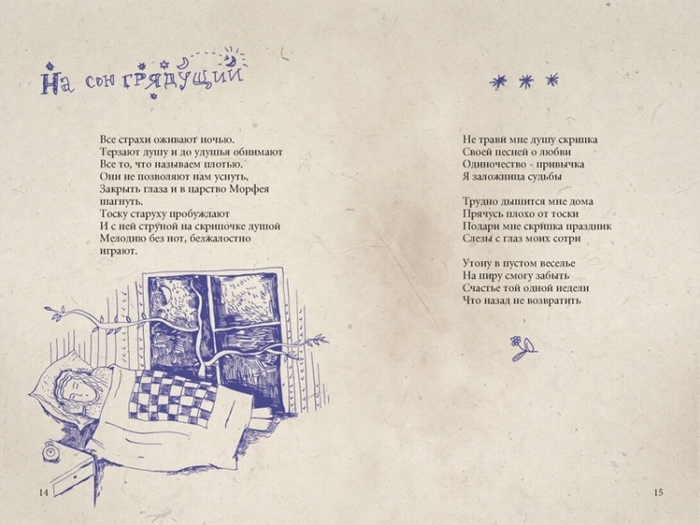 На сон грядущий
Все страхи оживают ночью.
Терзают душу и до удушья обнимают
Все то, что называем плотью.
Они не позволяют нам уснуть,
Закрыть глаза и в царство Морфея
шагнуть.
Тоску старуху пробуждают
И с ней струной на скрипочке душой
Мелодию без нот, безжалостно
играют.
14
* * *
Не трави мне душу скрипка
Своей песней о любви
Одиночество - привычка
Я заложница судьбы
Трудно дышится мне дома
Прячусь плохо от тоски
Подари мне скрипка праздник
Слезы с глаз моих сотри
Утону в пустом веселье
На пиру смогу забыть
Счастье той одной недели
Что назад не возвратить
15